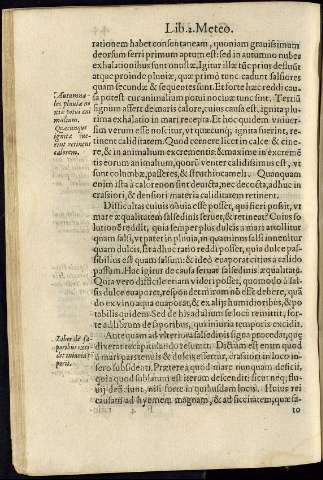 Lib.2. Meteo.
rationem habet consentaneam, quoniam grauissimum
deorsum ferri primum aptum est: sed in autumno nubes
exhalationibus sunt onustæ.
atque proinde pluuiæ, quæ primò tunc cadunt salsiores
quam secundæ & sequentes sunt. Et forte hæc reddi cau-
sa potest cur animalium potui nociuæ tunc sint. Tertiũ
signum asserit de maris calore, cuius causa est, ignita plu-
rima exhalatio in mari recepta. Et hoc quidem vniuer-
sim verum esse noscitur, vt quæcunq; ignita fuerint, re-
tineant caliditatem. Quod cernere licet in calce & cine-
re, & in animalium excrementis: & maxime in extremẽ
tis eorum animalium, quorũ venter calidissimus est, vt
sunt columbæ, passeres, & struthiocameli. Quanquam
enim ista à calore non sint deuicta, nec decocta, adhuc in
crassiori, & densiori materia caliditatem retinent.
Difficultas cuiuis obuia esse posset, quî fieri possit, vt
mare æqualitatem salsedinis seruet, & retineat? Cuius so
lutionẽ reddit, quia semper plus dulcis a mari attollitur
quam salsi, vt patet in pluuia, in qua minus salsi inuenitur
quam dulcis,
sibilius est quam salsum: & ideò euaporat citius a calido
passum. Hac igitur de causa seruat salsedinis æqualitatẽ.
Quia vero difficile etiam videri posset, quomodo à sal-
so dulce euaporet, respondet mirum nõ esse debere, quã
do ex vino aqua euaporat, & ex alijs humidioribus, & po
tabilibus quidem. Sed de his ad alium se locũ remittit, for-
te ad librum de saporibus, qui iniuria temporis excidit.
Antequam ad vlteriora salsedinis signa procedat, quæ
dixerat recapitulando resumit. Dictum est enim quod
à mari pars tenuis & dulcis effertur, crassiori in loco in-
fero subsidenti. Præterea quòd mare nunquam deficit,
quia quod sublatum est iterum descendit: sicut neq; flu-
uij deficiunt, nisi forte in quibusdam locis. Huius rei
causam ad hyemem magnam, & ad siccitatem, quæ sta-
to
Autumna
les pluuiæ cur
potui ani
malium.
Quæcunque
ignita fue-
rint retinent
calorem.
Liber de sa-
poribus exci
dit iniuria tẽ
poris.